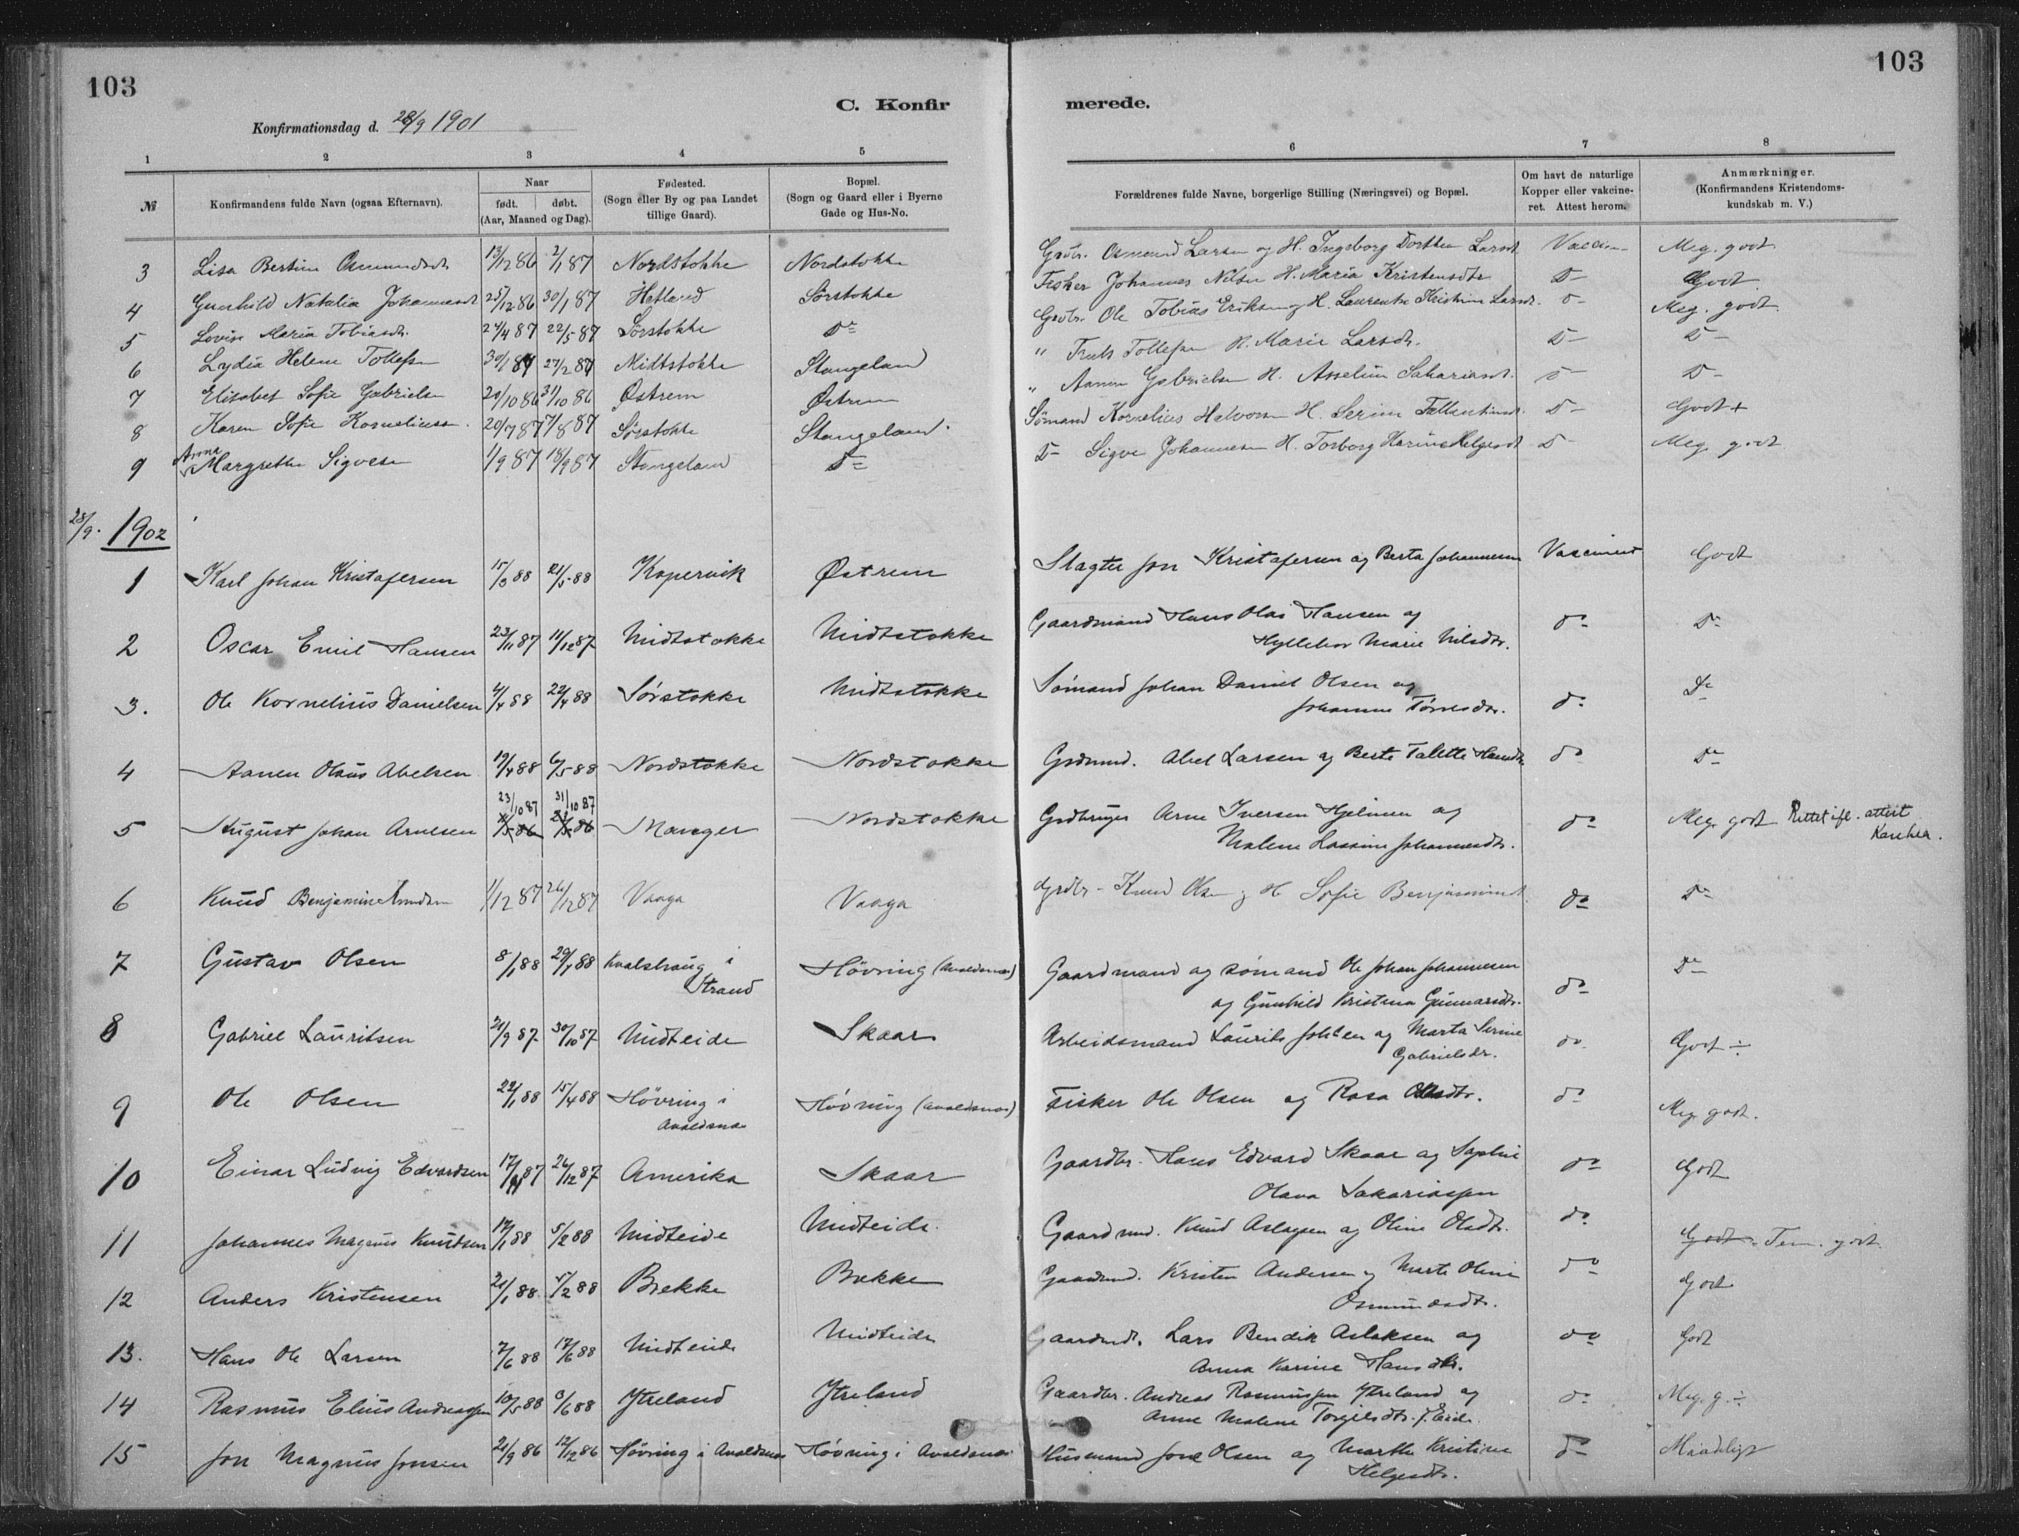 103
103
C. Konfir
merede.
Konfirmationsdag d. 28/9 1901
1 2 3 4 5 6 7 8
№ Konfirmandens fulde Navn (ogsaa Efternavn).
Naar
født. døbt.
(Aar, Maaned og Dag).
Fødested.
(Sogn eller By og paa Landet
tillige Gaard).
Bopæl.
(Sogn og Gaard eller i Byerne
Gade og Hus-No.
Forældrenes fulde Navne, borgerlige Stilling (Næringsvei) og Bopæl.
Om havt de naturlige
Kopper eller vakcine-
ret. Attest herom.
Anmærkninger.
(Konfirmandens Kristendoms-
kundskab m. V.)
3 Lisa Bertine Osmundsdt 13/12 86 2/1 87 Nordstokke Nordstokke Grdbr. Osmund Larsen og H. Ingeborg Dorthea Larsdt Vaccin- Meg. godt
4 Gunhild Natalia Johannesdt 25/12 86 30/1 87 Hetland Sørstokke Fisker Johannes Nilsen H. Maria Kristensdtr D- Godt
5 Lovise Maria Tobiasdt. 24/4 87 22/5 87 Sørstokke Do Grdbr. Ole Tobias Eriksen og H. Laurentse Kristine Larsdt. D- Meg. godt
6 Lydia Helene Tollefsen 30/1 87 27/2 87 Midtstokke Stangeland " Tollefsen H. Marie Larsdt. D- D-
7 Elisabet Sofie Gabrielsen 20/10 86 31/10 86 Østrem Østrem " Aanen Gabrielsen H. Asseline Sakariasdt. D- D-
8 Karen Sofie Korneliussen 20/7 87 7/8 87 Sørstokke Stangeland. Sømand Kornelius Halvorsen H. Serine D- Godt+
9 Anna Margrethe Sigvesen 1/9 87 18/9 87 Stangeland Do D- Sigve Johannesen H. Torborg Karine Helgesdt D- Meg. godt
28/9. 1902
1 Karl Johan Kristofersen 15/3 88 21/5 88 Kopervik Østrem Slagter Jon Kristofersen og Berta Johannesen Vaccineret Godt
2 Oscar Emil Hansen 23/11 87 11/12 87 Midtstokke Midtstokke Gaardmand Hans Olai Hansen og
Hyllebor Marie Nilsdtr. do Do
3. Ole Kornelius Danielsen 4/4 88 22/4 88 Sørstokke Midtstokke Sømand Johan Daniel Olsen og
Johanne Tørresdtr. do Do
4 Aanen Olaus Abelsen 19/4 88 6/5 88 Nordstokke Nordstokke Grdmnd. Abel Larsen og Berte Talette do Do
5 August Johan Arnesen 23/10 87 31/10 87 Manger Nordstokke Grdbruger Arne Iversen Hjelmen og
Malene Lassine Johannesdtr. do Meg. godt Rettet ifl. attest
6 Knud Benjamin Knudsen 1/12 87 26/12 87 Vaaga Vaaga Grdbr - Knud Olsen og H Sofie Benjaminsdt do Do
7 Gustav Olsen 8/1 88 29/1 88 Kvalshaug i
Strand Høvring (Avaldsnæs) Gaardmand og sømand Ole Johan Johannesen
og Gunhild Kristina Gunnarsdtr. do Do
8 Gabriel Lauritsen 21/9 87 30/10 87 Midteide Skaar Arbeidsmand Laurits Johnsen og Marta Serine
Gabrielsdr. do Godt ÷
9 Ole Olsen 22/1 88 15/4 88 Høvring i
Avaldsnæs Høvring (Avaldsnæs) Fisker Ole Olsen og Rasa Olsdtr. do Meg. godt.
10 Einar Ludvig Edvardsen 17/11 87 26/12 87 Amerika Skaar Gaardbr. Hans Edvard Skaar og Sophie
Olava Sakariassen do Godt
11 Johannes Magnus Knudsen 12/1 88 5/2 88 Midteide Midteide. Gaardmnd. Knud Aslaksen og Oline Olsdtr. do Godt Tem. godt
12 Anders Kristensen 21/1 88 5/2 88 Brekke Brekke Gaardmnd. Kristen Andersen og Marte Oline
Osmundsdtr. do Godt
13. Hans Ole Larsen 7/6 88 17/6 88 Midteide Midteide Gaardmd. Lars Bendik Aslaksen og
Anna Karine Hansdtr. do Godt
14 Rasmus Elius Andreassen 10/5 88 3/6 88 Ytreland Ytreland Gaardbr. Andreas Rasmussen Ytreland og
Anne Malene Torgilsdtr. f. Eide. do Meg. g ÷
15 Jon Magnus Jonsen 21/9 86 12/12 86 Høvring i Avaldsnæs Høvring i Avaldsnæs Husmand Jone Olsen og Marthe Kristine
Helgesdtr. do Maadeligt